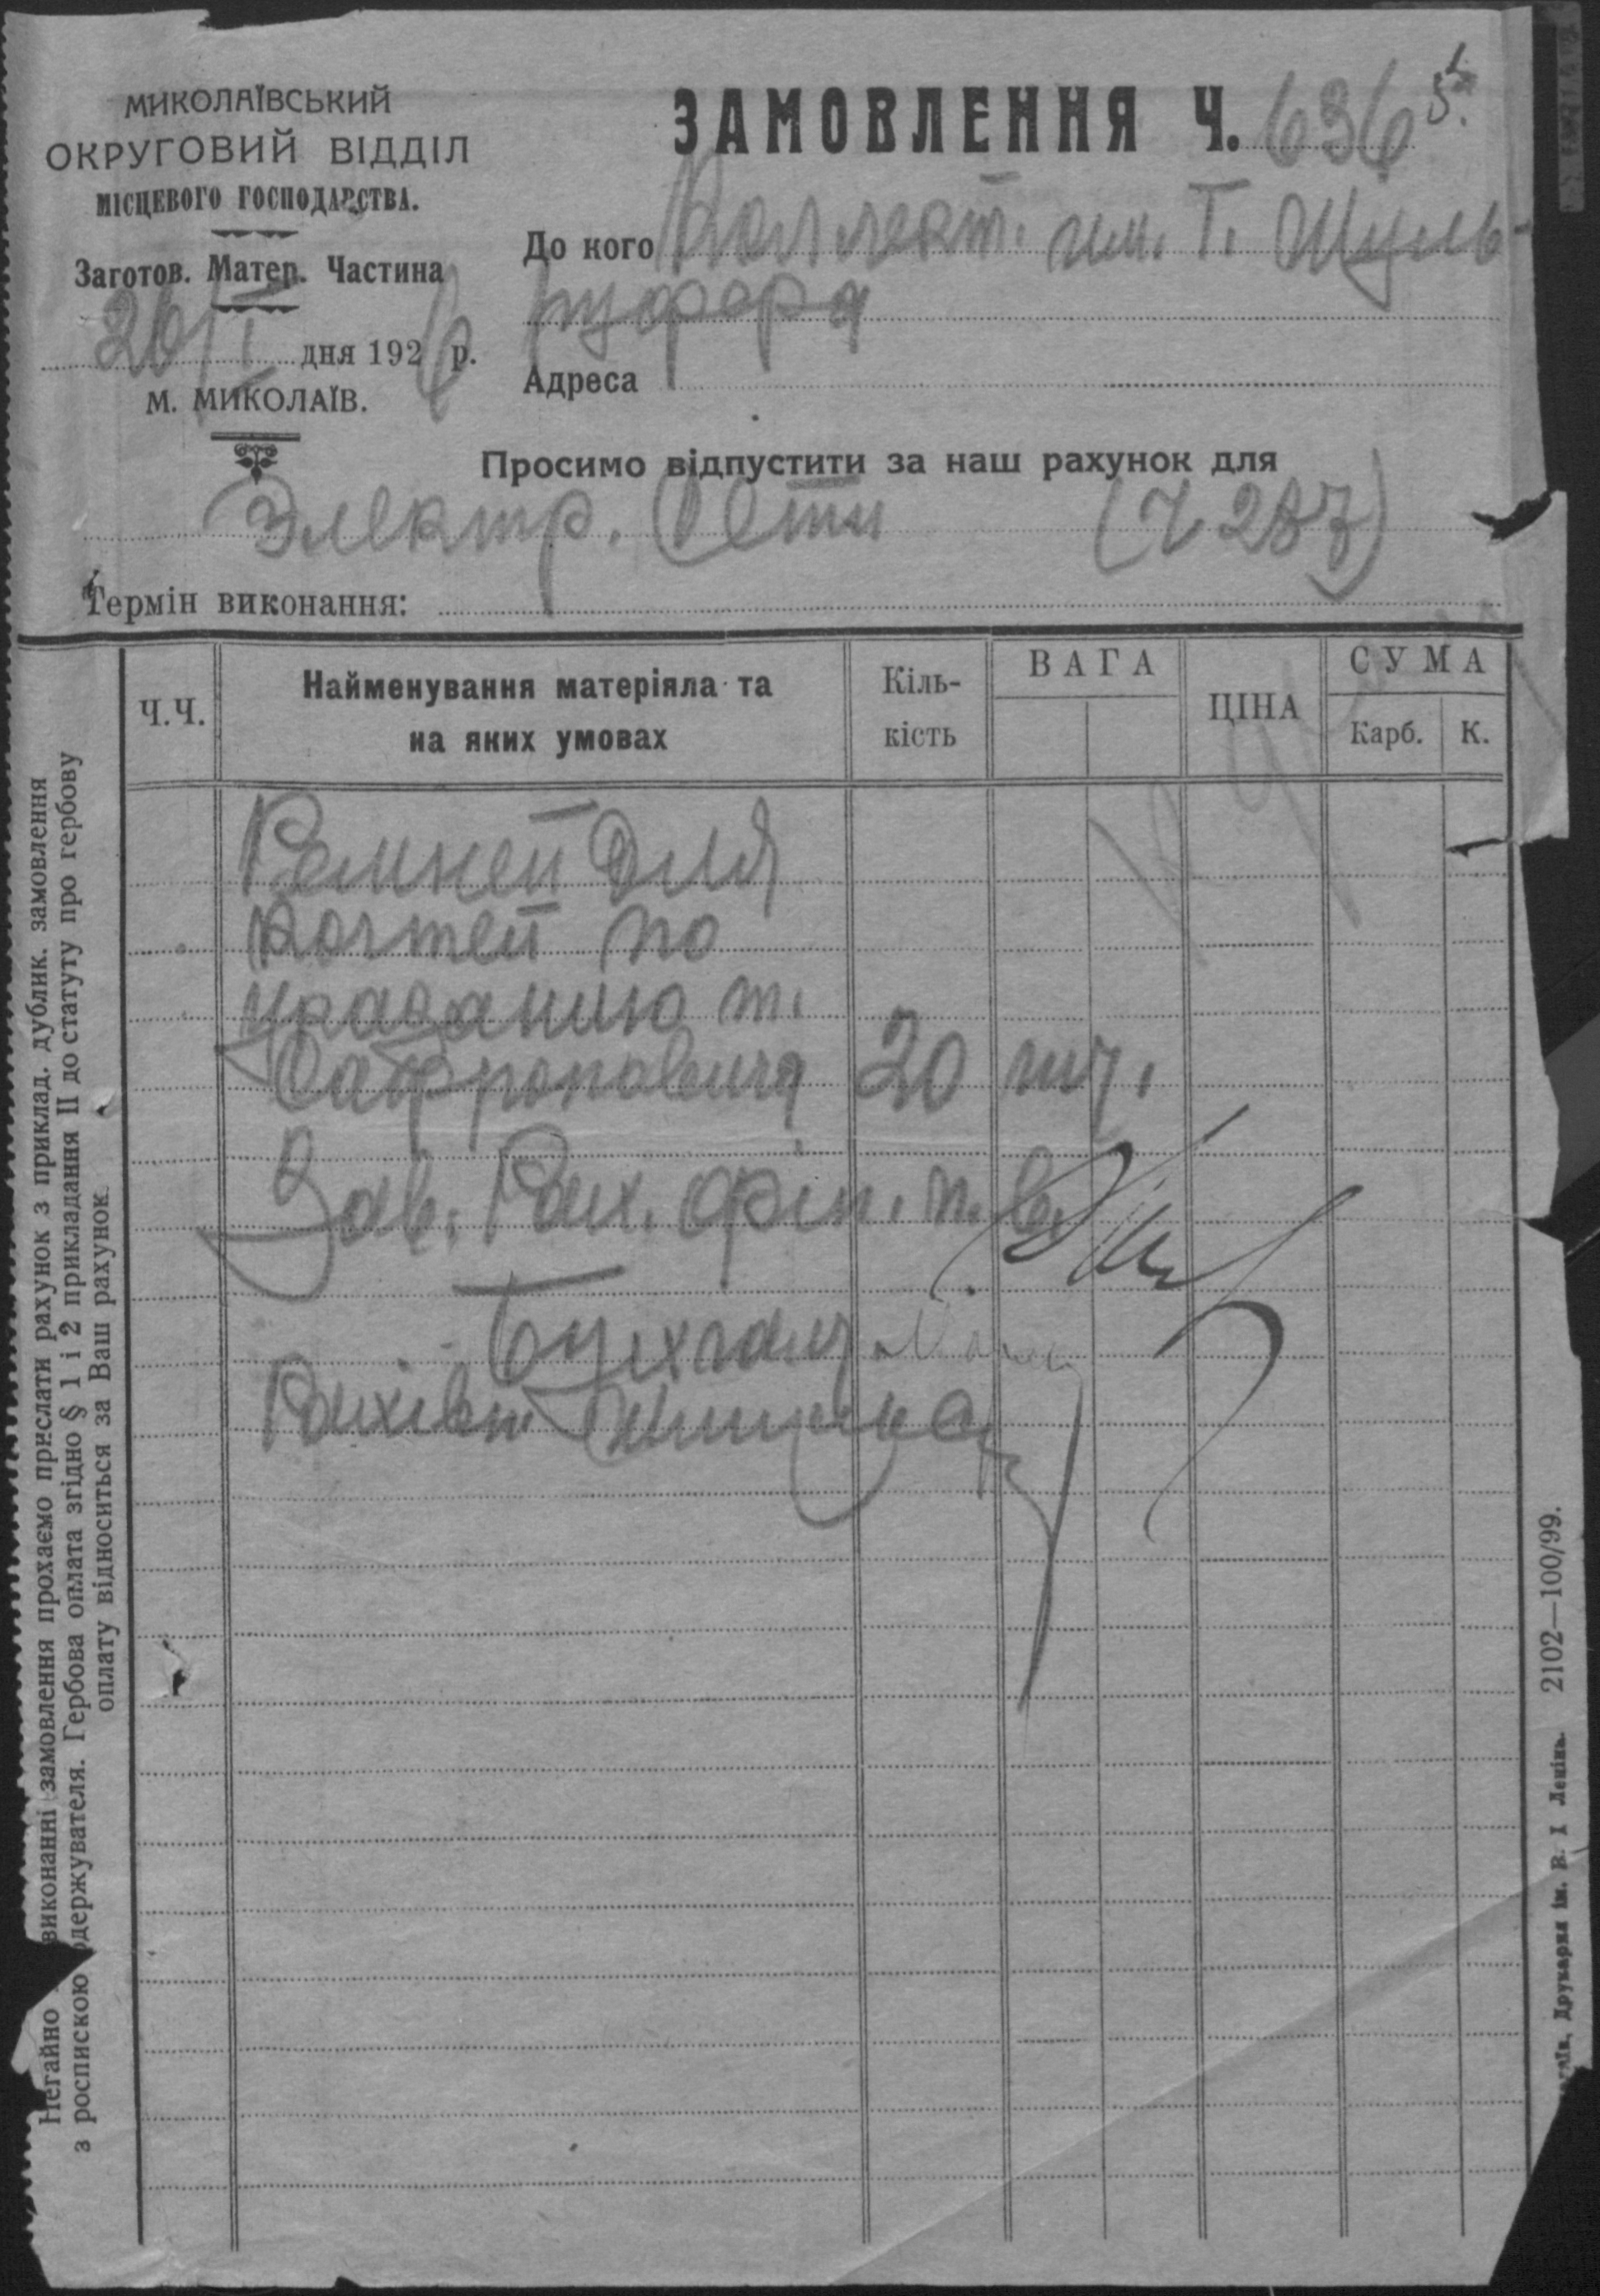 МИКОЛАЇВСЬКИЙ
ОКРУГОВИЙ ВІДДІЛ
МІСЦЕВОГО ГОСПОДАРСТВА.
Заготов. Матер. Частина
26/I дня 1926 р.
М. МИКОЛАЇВ.
ЗАМОВЛЕННЯ Ч. 636
До кого Коллект. им. Т. Шуль-
Адреса
Просимо відпустити за наш рахунок для
Электр. Сети (Ч 287)
Термін виконання:
Ч.Ч. Найменування матеріяла та на яких умовах Кіль-кість ВАГА ЦІНА СУМА Карб. К.
Ремней для
Когтей по
указанию т.
20 шт.
Зав. Рах. фін. п. в.
Бухгал
Рахівн.
Негайно виконанні замовлення прохаємо прислати рахунок з приклад. дублик. замовлення
з роспискою одержувателя. Гербова оплата згідно § 1 і 2 прикладання II до статуту про гербову
оплату відноситься за Ваш рахунок.
Друкарня ім. В. І Леніна. 2102—100/99.